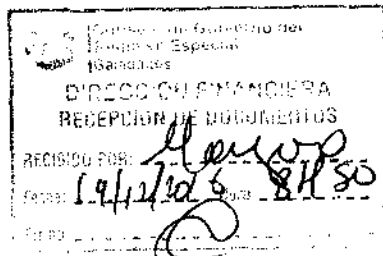 Consejo de Gobierno del
Régimen Especial
Galápagos
DIRECCION FINANCIERA
RECEPCION DE DOCUMENTOS
RECIBIDO POR:
Fecha: 19/12/2016 8H50